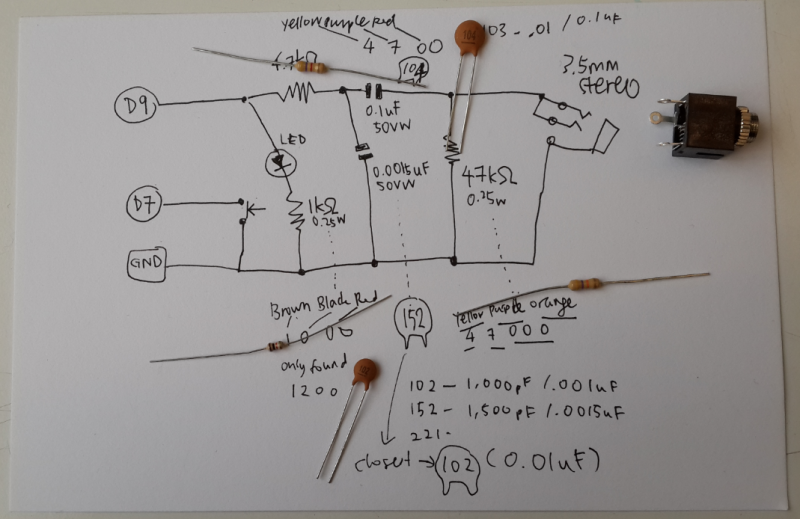 yellow purple Red
4 7 00
103 - .01 / 0.1uF
4.7kΩ
104
3.5mm
stereo
D9
0.1uF
50VW
LED
0.0015uF
50VW
47kΩ
0.25W
D7
1kΩ
0.25W
GND
Brown Black Red
1 0 00
only found
1200
152
Yellow purple orange
4 7 000
102 - 1,000pF / .001uF
152 - 1,500pF / .0015uF
221-
closet → 102 (0.01uF)